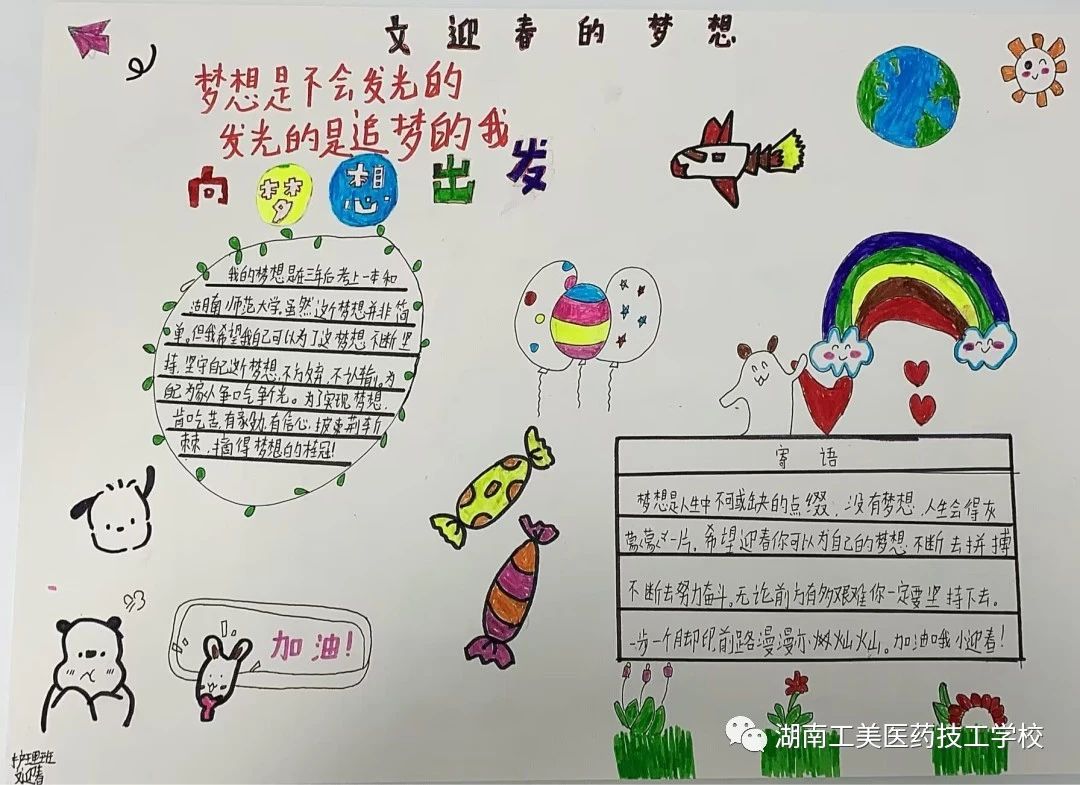 文迎春的梦想
梦想是不会发光的
发光的是追梦的我
向梦想出发
我的梦想是在三年后考上一本和
湖南师范大学.虽然这个梦想并非简
单。但我希望我自己可以为了这梦想不断坚
持.坚守自己这个梦想.不为弃.不认输。为
自己为家人争口气争光。为了实现梦想.
肯吃苦.有家劲.有信心.披束荆斩
棘.摘得梦想的桂冠!
寄语
梦想是人生中不可或缺的点缀.没有梦想.人生会得灰
蒙蒙的一片。希望迎春你可以为自己的梦想不断去拼搏
不断去努力奋斗。无论前方有多艰难你一定要坚持下去。
一步一个脚印前路漫漫亦灿灿。加油哦小迎春!
加油!
护理班
文迎春
湖南工美医药技工学校